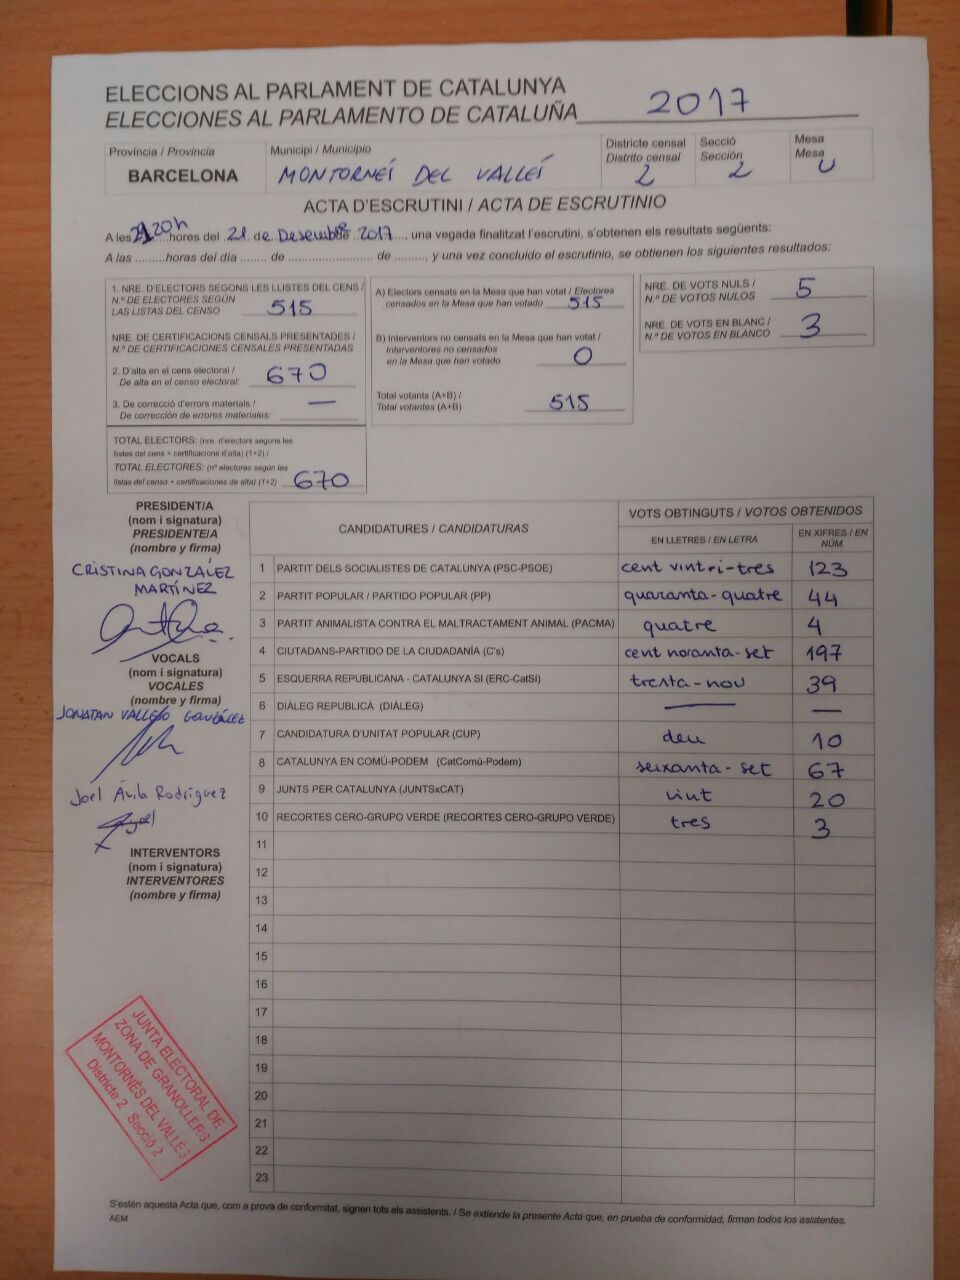 ELECCIONS AL PARLAMENT DE CATALUNYA
ELECCIONES AL PARLAMENTO DE CATALUÑA 2017
Província / Provincia
BARCELONA
Municipi / Municipio
MONTORNÉS DEL VALLÉS
Districte censal
Distrito censal
2
Secció
Sección
2
Mesa
Mesa
U
ACTA D'ESCRUTINI / ACTA DE ESCRUTINIO
A les 21 20h hores del 21 de Desembre 2017, una vegada finalitzat l'escrutini, s'obtenen els resultats següents:
A las .........horas del día ........ de ......................... de .........., y una vez concluido el escrutinio, se obtienen los siguientes resultados:
1. NRE. D'ELECTORS SEGONS LES LLISTES DEL CENS /
N.º DE ELECTORES SEGÚN
LAS LISTAS DEL CENSO 515
NRE. DE CERTIFICACIONS CENSALS PRESENTADES /
N.º DE CERTIFICACIONES CENSALES PRESENTADAS
2. D'alta en el cens electoral /
De alta en el censo electoral: 670
3. De correcció d'errors materials / —
De corrección de errores materiales:
TOTAL ELECTORS: (nre. d'electors segons les
llistes del cens + certificacions d'alta) (1+2) /
TOTAL ELECTORES: (nº electores según las
listas del censo + certificaciones de alta) (1+2) 670
A) Electors censats en la Mesa que han votat / Electores
censados en la Mesa que han votado 515
B) Interventors no censats en la Mesa que han votat /
Interventores no censados
en la Mesa que han votado 0
Total votants (A+B) /
Total votantes (A+B) 515
NRE. DE VOTS NULS /
N.º DE VOTOS NULOS 5
NRE. DE VOTS EN BLANC /
N.º DE VOTOS EN BLANCO 3
PRESIDENT/A
(nom i signatura)
PRESIDENTE/A
(nombre y firma)
CRISTINA GONZALEZ
MARTÍNEZ
VOCALS
(nom i signatura)
VOCALES
(nombre y firma)
JONATAN VALLEJO GONZÁLEZ
Joel Ávila Rodríguez
INTERVENTORS
(nom i signatura)
INTERVENTORES
(nombre y firma)
CANDIDATURES / CANDIDATURAS
VOTS OBTINGUTS / VOTOS OBTENIDOS
EN LLETRES / EN LETRA
EN XIFRES / EN
NÚM.
1 PARTIT DELS SOCIALISTES DE CATALUNYA (PSC-PSOE) cent vint-i-tres 123
2 PARTIT POPULAR / PARTIDO POPULAR (PP) quaranta-quatre 44
3 PARTIT ANIMALISTA CONTRA EL MALTRACTAMENT ANIMAL (PACMA) quatre 4
4 CIUTADANS-PARTIDO DE LA CIUDADANÍA (C's) cent noranta-set 197
5 ESQUERRA REPUBLICANA - CATALUNYA SI (ERC-CatSí) trenta-nou 39
6 DIÀLEG REPUBLICÀ (DIÀLEG) — —
7 CANDIDATURA D'UNITAT POPULAR (CUP) deu 10
8 CATALUNYA EN COMÚ-PODEM (CatComú-Podem) seixanta-set 67
9 JUNTS PER CATALUNYA (JUNTSxCAT) vint 20
10 RECORTES CERO-GRUPO VERDE (RECORTES CERO-GRUPO VERDE) tres 3
11
12
13
14
15
16
17
18
19
20
21
22
23
JUNTA ELECTORAL DE
ZONA DE GRANOLLERS
MONTORNÈS DEL VALLÈS
Districte 2 Secció 2
S'estén aquesta Acta que, com a prova de conformitat, signen tots els assistents. / Se extiende la presente Acta que, en prueba de conformidad, firman todos los asistentes.
AEM